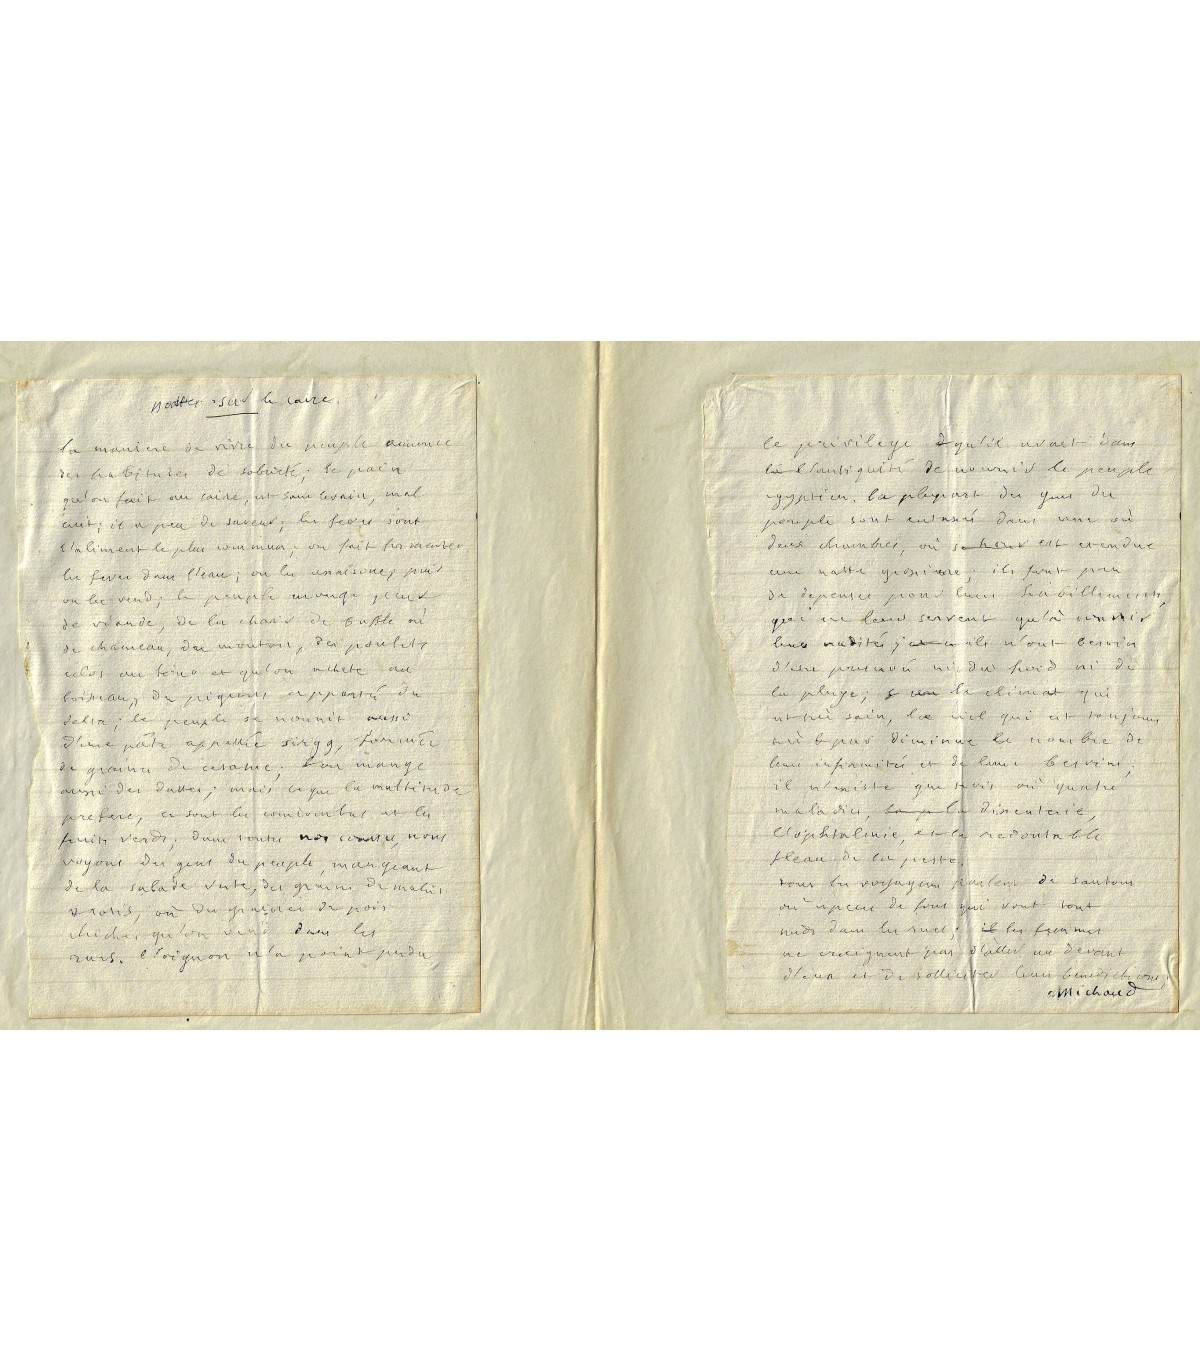 sur le caire
la maniere de vivre du peuple annonce
des habitudes de sobrieté; le pain
qu'on fait au caire, est sans levain, mal
cuit; il a peu de saveur; les feves sont
l'aliment le plus commun; on fait fermenter
les feves dans l'eau; on les assaisone, puis
on les vend; le peuple mange peu
de viande, de la chair de buffle ou
de chameau, du mouton, des poulets
eclos au four et qu'on achete au
boisseau, des pigeons apportés du
delta; le peuple se nourrit aussi
d'une pâte appellée sirgg, formée
de graines de cesame; on mange
aussi des dattes; mais ce que la multitude
prefere, ce sont les concombres et les
fruits verds. dans toutes nos courses, nous
voyons des gens du peuple, mangeant
de la salade verte, des grains de mahis
rotis, où des graines de pois
chiches qu'on vend dans les
rues. l'oignon n'a point perdu
le privilege qu'il avait dans
la l'antiquité de nourrir le peuple
egyptien. la plupart des gens du
peuple sont entassés dans une où
deux chambres, où est etendue
une natte grossiere; ils font peu
de depenses pour leurs habillements,
qui ne leur servent qu'à couvrir
leur nudité; ils n'ont besoin
d'etre preservé ni du froid ni de
la pluye; le climat qui
est très sain, le ciel qui est toujours
pur diminue le nombre de
leurs infirmités et de leurs besoins;
il n'existe que trois où quatre
maladies, la dissenterie,
l'ophtalmie, et le redoutable
fleau de la peste.
tous les voyageurs parlent de santons
où espece de fous qui vont tout
nuds dans les rues; il les femmes
ne craignent pas d'aller au devant
d'eux et de solliciter leurs benedictions.
Michaud